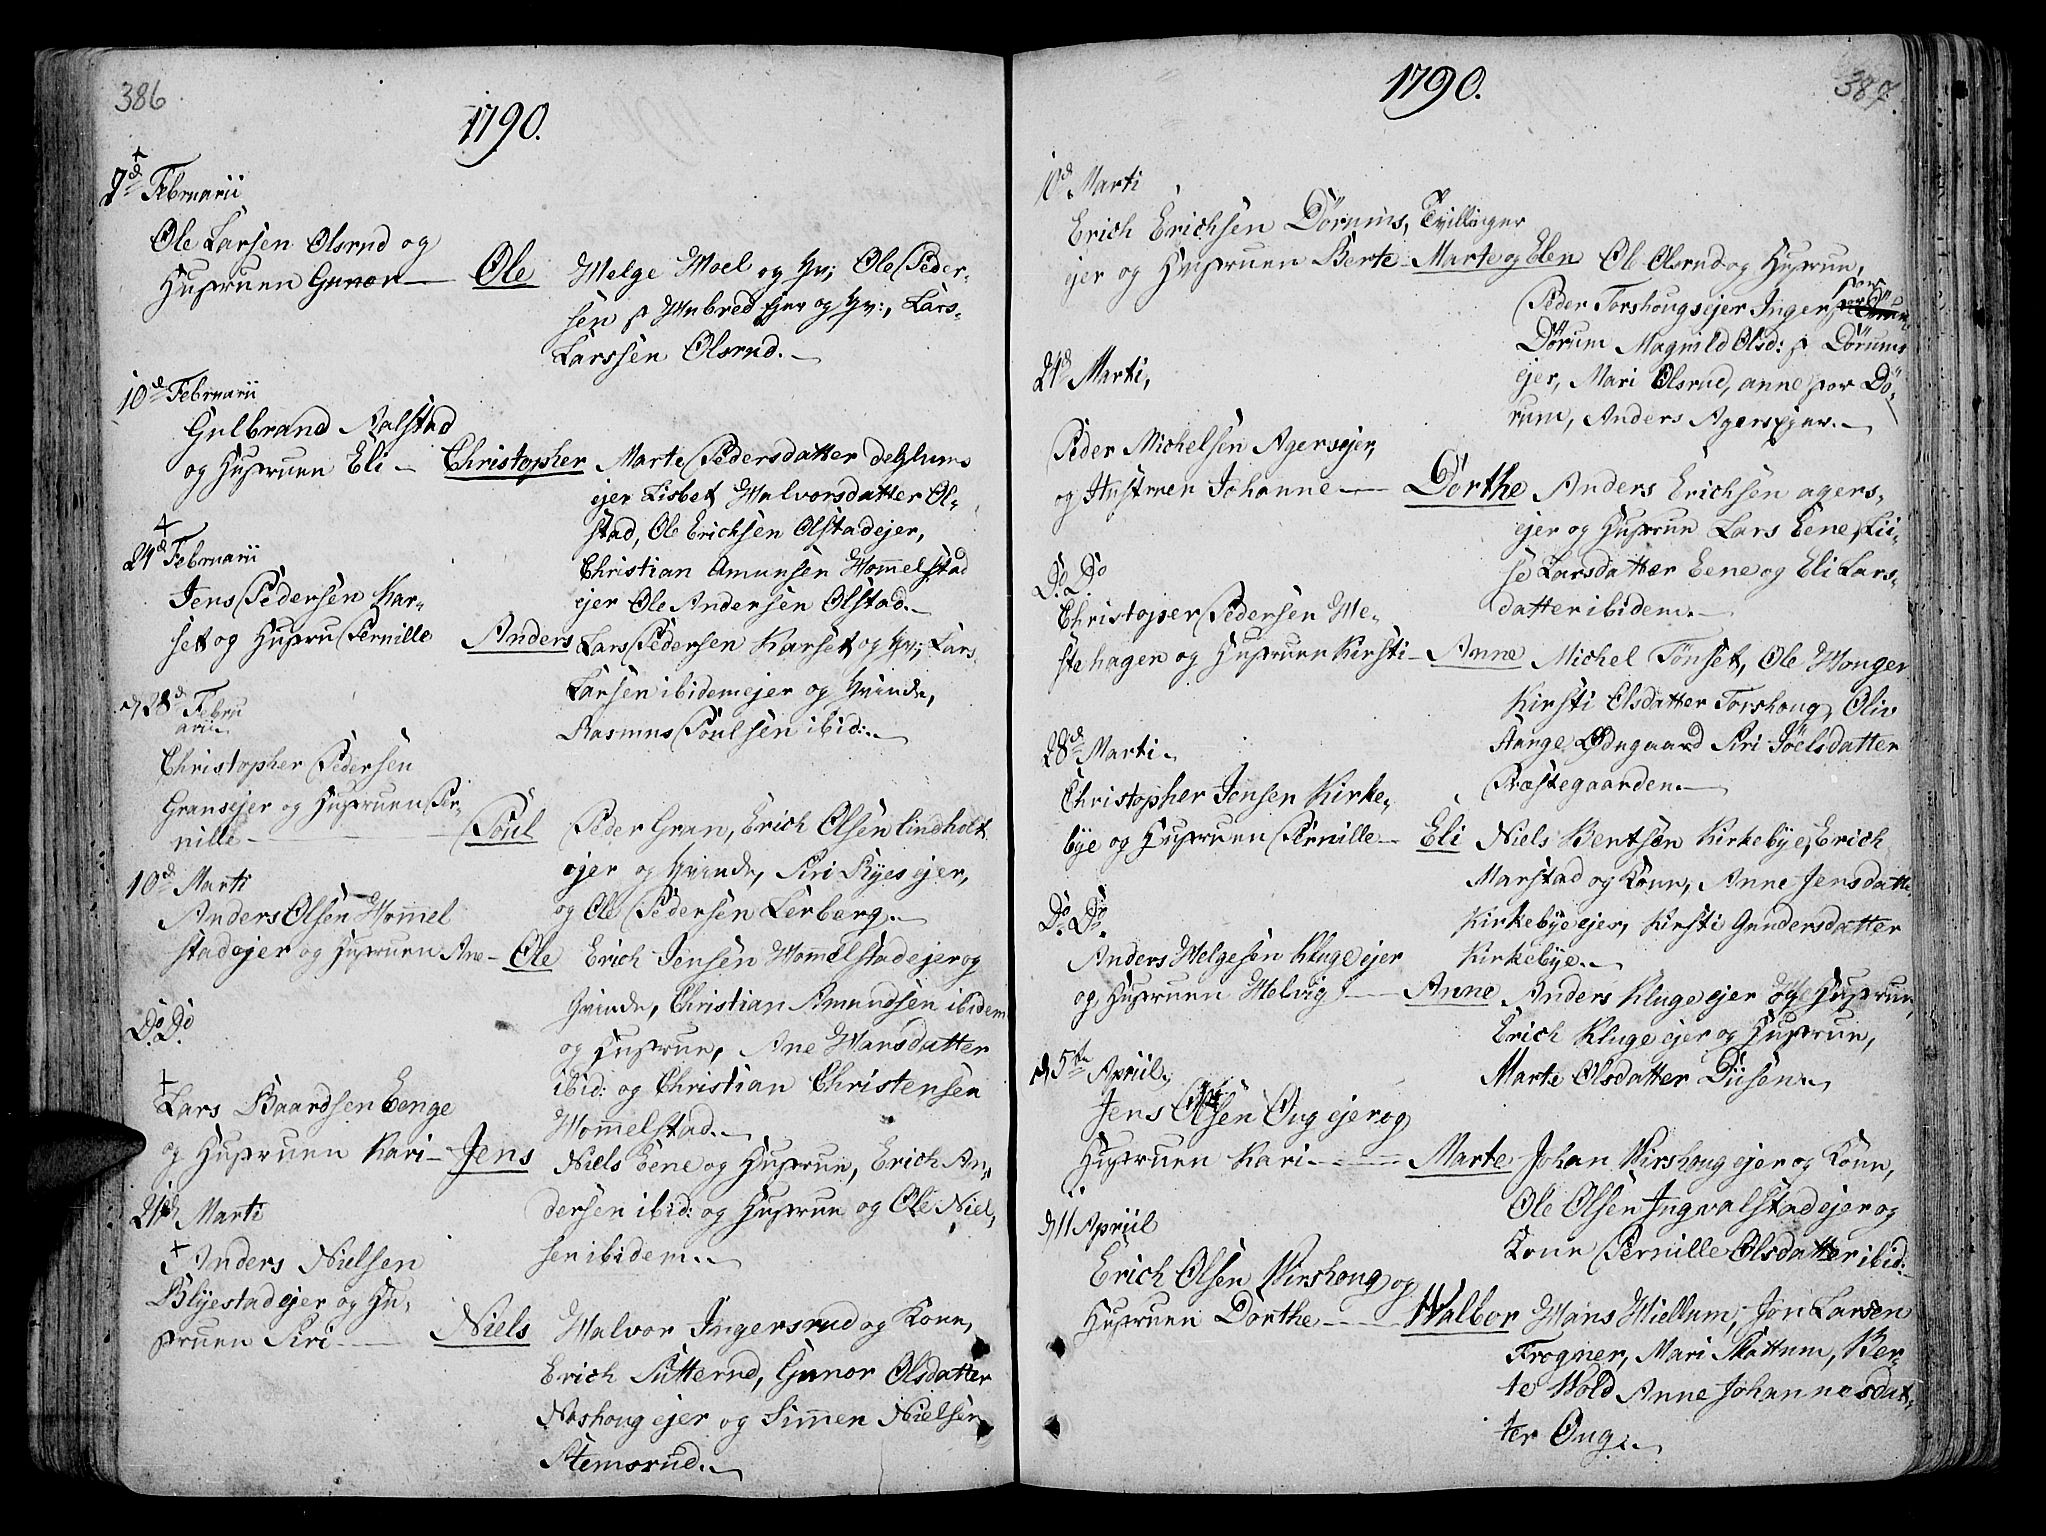 386
1790.
7d Februarii
Ole Larsen Olsrud og
Hustruen Gunor — Ole Helge Moel og Hv; Ole Peder-
sen p Hubred Ejer og Hv:, Lars
Larssen Olsrud.
10d Februarii
Gulbrand Alstad
og Hustruen Eli — Christopher Marte Pedersdatter deglums
ejer Lisbet Halvorsdatter Ol-
stad, Ole Erichsen Olstadejer,
Christian Amunsen Hommelstad
ejer Ole Andersen Olstad.
24d Februarii
Jens Pedersen Kar-
set og Hustru Pernille Anders Lars Pedersen Karset og Hv; Lars
Larsen ibidemejer og Qvinde,
Rasmus Poulsen ibid:
d 28d Febru
arii
Christopher Pedersen
Gransejer og Hustruen Per-
nille — Poul Peder Gran, Erich Olsen lindholt
ejer og Qvinde, Siri Ryes ejer,
og Ole Pedersen Lerberg.
10d Marti
Anders Olsen Hommel
stadejer og Hustruen Ane — Ole Erich Jensen Hommelstadejer og
Qvinde, Christian Amundsen ibidem
og Hustrue, Ane Hansdatter
ibid: og Christian Christensen
Hommelstad.
Do Do
Lars Baardsen Eenge
og Hustruen Kari — Jens Niels Eene og Hustrue, Erich An-
dersen ibid: og Hustrue og Ole Niel-
sen ibidem.
21d Marti
Anders Nielsen
Blyestadejer og Hu-
struen Siri — Niels Halvor Ingersrud og Kone,
Erich Sutterud, Gunor Olsdatter
Nashoug ejer og Simen Nielsen
Stemsrud.
387.
1790.
10d Marti
Erich Erichsen Dørums, Tvillinger
ejer og Hustruen Berte — Marte og Elen Ole Olsrud og Hustrue,
Peder Torshougsejer Inger por
Dørum Magnild Olsd: p Dørums
ejer, Mari Olsrud, anne por Dö-
rum, Anders Agersejer.
21d Marti,
Peder Michelsen Agersejer,
og Hustruen Johanne — Dorthe Anders Erichsen agers-
ejer og Hustrue Lars Eene, Lii-
se Larsdatter Eene og Eli Lars-
datter ibidem.
Do Do
Christopher Pedersen Me-
stehagen og Hustruen Kirsti — Anne Michel Tönset, Ole Honger
Kirsti Olsdatter Torshoug, Oliv
Stange Ødegaard Siri Jöelsdatter
Præstegaarden.
28d Marti
Christopher Jonsen Kirke-
bye og Hustruen Pernille — Eli Niels Bentsen Kirkebye, Erich
Marstad og Kone, Anne Jensdatt.
Kirkebyeejer, Kirsti Gundersdatter
Kirkebye.
Do Do
Anders Helgesen Klugeejer
og Hustruen Helvig — Anne Anders Kluge ejer og Hustrue,
Erich Kluge ejer og Hustrue,
Marte Olsdatter Diisen
d 5te Apriil
Jens Olsen Oug ejer og
Hustruen Kari — Marte Johan Virshoug ejer og Kone,
Ole Olsen Ingvalstadejer og
Kone Pernille Olsdatter ibid:
d 11 Apriil
Erich Olsen Virshoug og
Hustruen Dorthe — Walbor Hans Hiellum, Jon Larsen
Frogner, Mari Skattum, Ber-
te Wold Anne Johannesdat-
ter Oug.